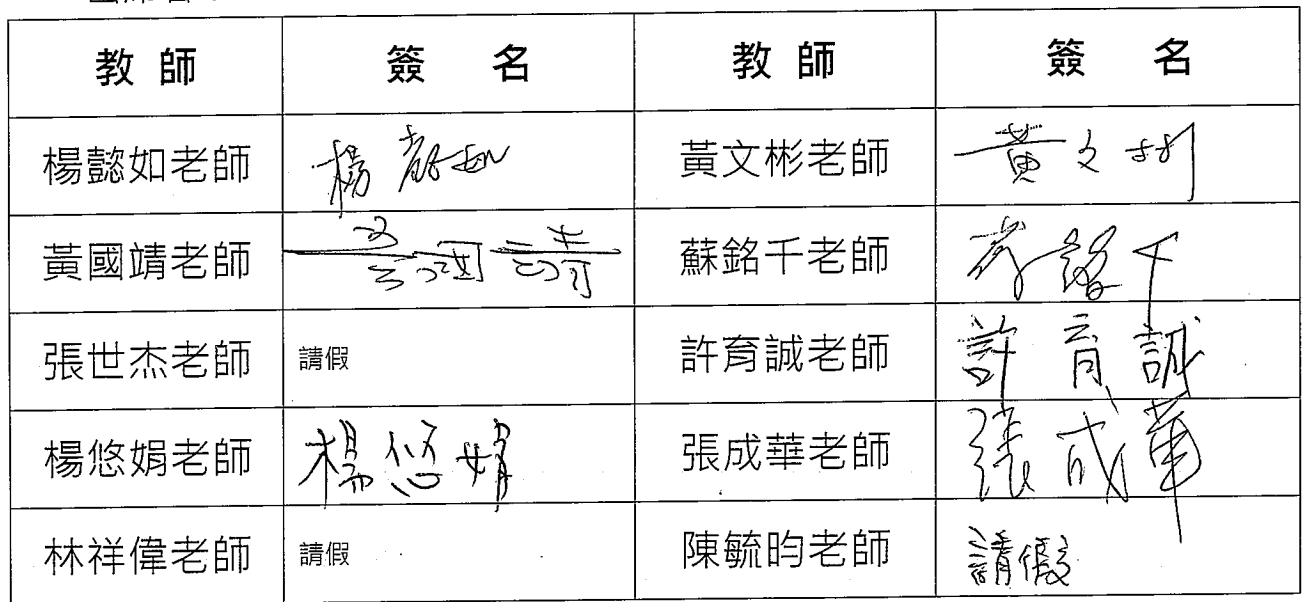 教師 簽名 教師 簽名
楊懿如老師 楊懿如 黃文彬老師 黃文彬
黃國靖老師 蘇銘千老師
張世杰老師 請假 許育誠老師 許育誠
楊悠娟老師 楊悠娟 張成華老師 張成華
林祥偉老師 請假 陳毓昀老師 請假